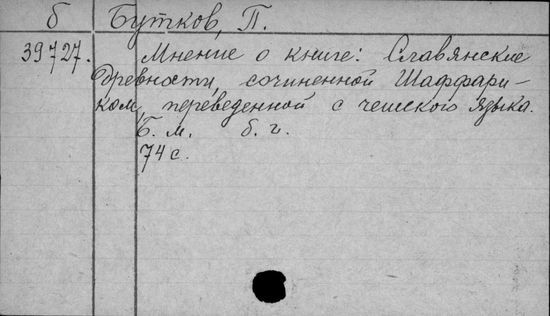 б Бутков, П.
39727. Мнение о книге: Славянские
древности, сочиненной Шаффари-
ком, переведенной с чешского языка.
Б. м. б. г.
74 с.